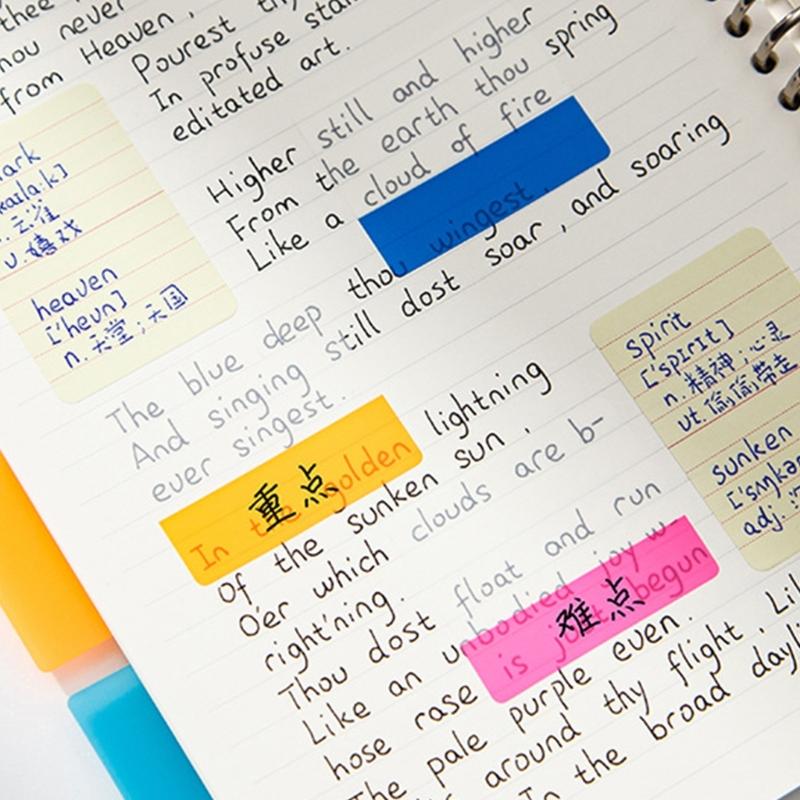 thee
Pourest thy
hou never
In profuse
from Heaven,
editated art.
Higher still and higher
From the earth thou spring
Like a cloud of fire
The blue deep thou wingest,
And singing still dost soar, and soaring
ever singest.
In the golden lightning
重点
Of the sunken sun,
O'er which clouds are b-
right'ning.
Thou dost float and run
Like an unbodied joy w-
hose rase is just begun
难点
The pale purple even.
around thy flight, Li
In the broad dayli
ark
n.云雀
v.嬉戏
heaven
['hevn]
n.天堂;天国
spirit
['spIrIt]
n.精神;心灵
vt.偷偷带走
sunken
['sʌŋkən
adj.